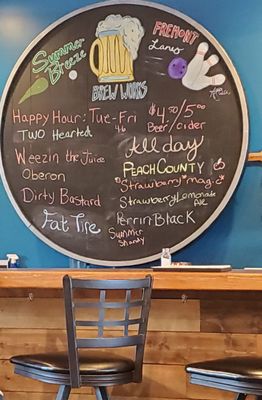 Summer Breeze
BREW WORKS
FREMONT
Lanes
Happy Hour: Tue-Fri
4-6
$4.50/5.00
Beer/Cider
TWO Hearted
All day
Weezin the Juice
PEACH COUNTY
Oberon
Strawberry *mag.c*
Dirty Bastard
Strawberry Lemonade
Ale
Fat Tire
Perrin Black
Summer
Shandy